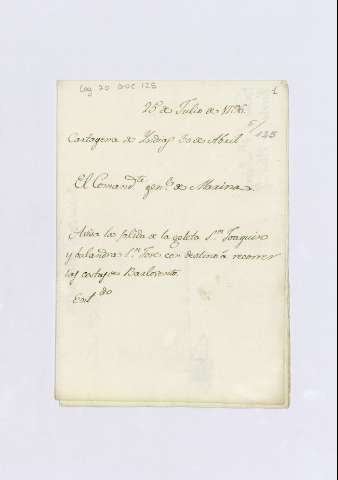 Leg 20 DOC 125
1
25 de Julio de 1796.
5/125
Cartagena de Yndias 30 de Abril
El Comand.te gen.l de Marina.
Avisa la salida de la goleta S.n Joaquin
y balandra S.n Jose con destino a recorrer
las costas de Barlovento.